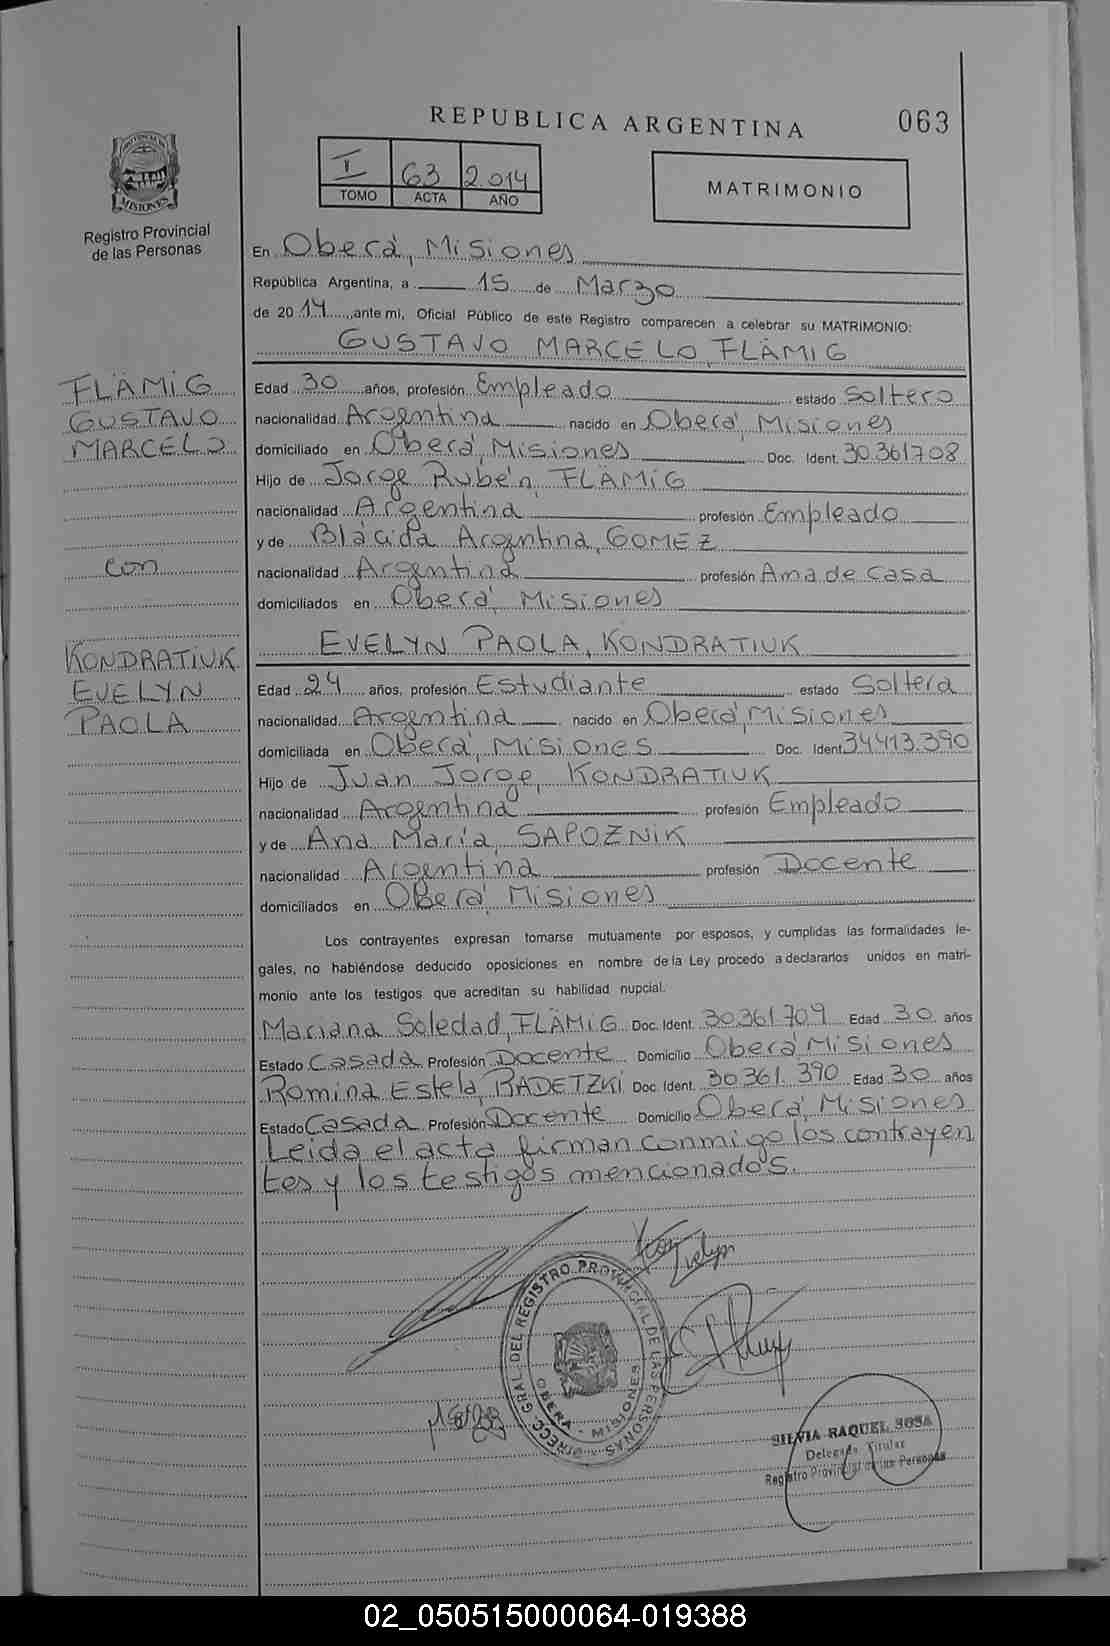 REPUBLICA ARGENTINA
063
I 63 2.014
TOMO ACTA AÑO
MATRIMONIO
PROVINCIA DE
MISIONES
Registro Provincial
de las Personas
En Oberá, Misiones
República Argentina, a 15 de Marzo
de 2014, ante mi, Oficial Público de este Registro comparecen a celebrar su MATRIMONIO:
GUSTAVO MARCELO, FLÄMIG
FLÄMIG
GUSTAVO
MARCELO
Edad 30 años, profesión Empleado estado Soltero
nacionalidad Argentina nacido en Oberá, Misiones
domiciliado en Oberá, Misiones Doc. Ident. 30.361708
Hijo de Jorge Rubén, FLÄMIG
nacionalidad Argentina profesión Empleado
y de Blácida Argentina, GOMEZ
con
nacionalidad Argentina profesión Ama de casa
domiciliados en Oberá, Misiones
EVELYN PAOLA, KONDRATIUK
KONDRATIUK
EVELYN
PAOLA
Edad 24 años, profesión Estudiante estado Soltera
nacionalidad Argentina nacido en Oberá, Misiones
domiciliada en Oberá, Misiones Doc. Ident. 34413.390
Hijo de Juan Jorge, KONDRATIUK
nacionalidad Argentina profesión Empleado
y de Ana María, SAPOZNIK
nacionalidad Argentina profesión Docente
domiciliados en Oberá, Misiones
Los contrayentes expresan tomarse mutuamente por esposos, y cumplidas las formalidades le-
gales, no habiéndose deducido oposiciones en nombre de la Ley procedo a declararlos unidos en matri-
monio ante los testigos que acreditan su habilidad nupcial.
Mariana Soledad, FLÄMIG Doc. Ident. 30361709 Edad 30 años
Estado Casada Profesión Docente Domicilio Oberá Misiones
Romina Estela, RADETZKI Doc. Ident. 30361.390 Edad 30 años
Estado Casada Profesión Docente Domicilio Oberá, Misiones
Leida el acta firman conmigo los contrayen
tes y los testigos mencionados.
Evelyn
DIRECC. GRAL. DEL REGISTRO PROVINCIAL DE LAS PERSONAS
OBERA - MISIONES
SILVIA RAQUEL SOSA
Delegada Titular
Registro Provincial de las Personas
02_050515000064-019388